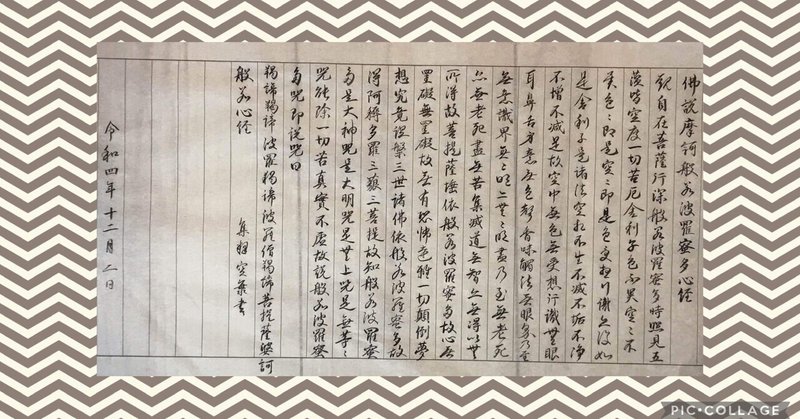 佛説摩訶般若波羅蜜多心経
観自在菩薩行深般若波羅蜜多時照見五
蘊皆空度一切苦厄舍利子色不異空々不
異色々即是空々即是色受想行識亦復如
是舍利子是諸法空相不生不滅不垢不浄
不増不減是故空中無色無受想行識無眼
耳鼻舌身意無色声香味触法無眼界乃至
無意識界無々明亦無々明盡乃至無老死
亦無老死盡無苦集滅道無智亦無得以無
所得故菩提薩埵依般若波羅蜜多故心無
罣礙無罣礙故無有恐怖遠離一切顛倒夢
想究竟涅槃三世諸佛依般若波羅蜜多故
得阿耨多羅三藐三菩提故知般若波羅蜜
多是大神咒是大明咒是無上咒是無等々
咒能除一切苦真實不虚故説般若波羅蜜
多咒即説咒曰
羯諦羯諦波羅羯諦波羅僧羯諦菩提薩婆訶
般若心経
書
令和四年十二月二日
PIC•COLLAGE